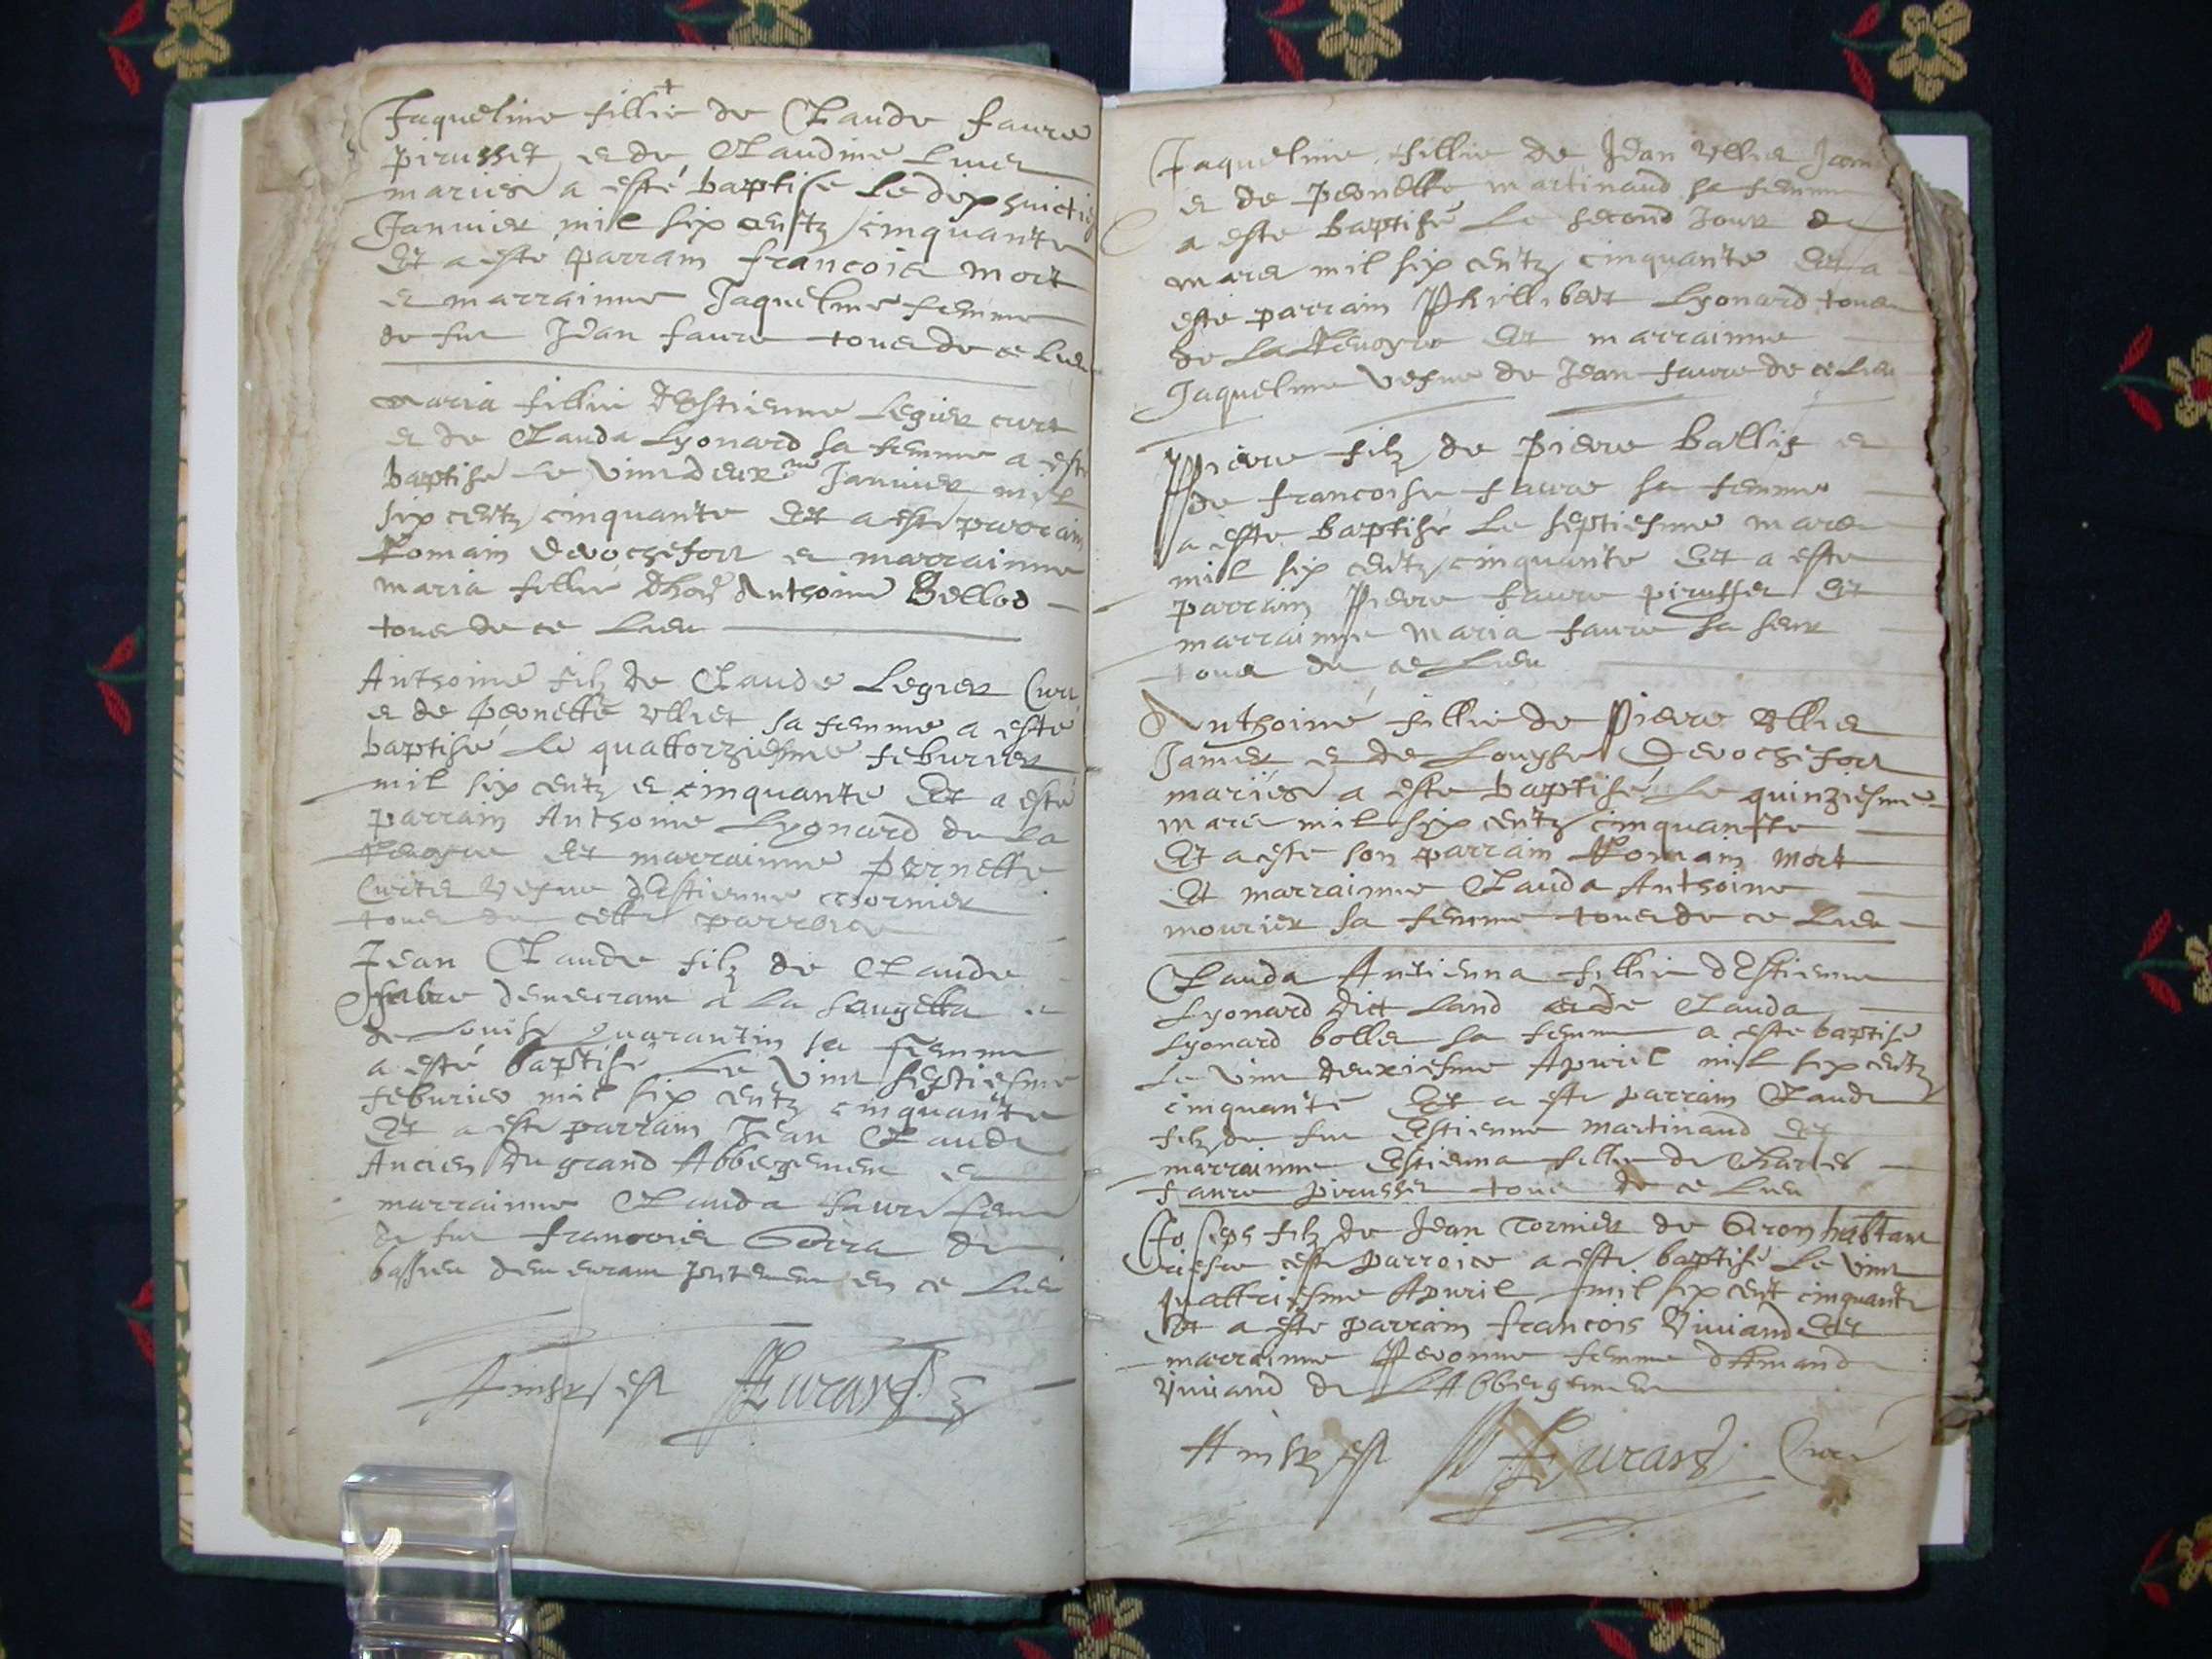 Jaqueline fillie de Claude faure
pirusset et de Claudine
maries a esté baptise le dix huicti
Januier mil six centz cinquante
Et a esté parrain francois mort
et marrainne Jaqueline femme
de fut Jean faure tous de ce lieu
maria fillie d'Estienne Legier curt
et de Clauda Lyonard sa femme a esté
baptisé le vint deux me Januier mil
six centz cinquante Et a este parrain
Romain Derochefort et marrainne
maria fillie Anthoine Bellod
tous de ce Lieu
Anthoine filz de Claude Legier
et de pernette Ulliet sa femme a esté
baptisé le quattorziesme feburier
mil six centz et cinquante Et a esté
parrain Anthoine Lyonard de la
Et marrainne pernette
vefue d'Estienne Tornier
tous de cette parroice
Jean Claude filz de Claude
demeurant a la
de Louise quarantin sa femme
a esté baptisé Le vint septiesme
feburier mil six centz cinquante
Et a este parrain Jean Claude
Ancien du grand Abbergement et
marrainne Clauda faure
de fut francois de
demeurant en ce Lieu
Ainsy est
Jaqueline fillie de Jean Ullier
et de pernette martinand sa femme
a este baptisé Le second Jour de
mars mil six centz cinquante Et a
esté parrain Phillibert Lyonard tous
de La Et marrainne
Jaqueline vefue de Jean faure de ce lieu
Pierre filz de pierre ballif et
de francoise faure sa femme
a este baptisé Le septiesme mars
mil six centz cinquante Et a este
parrain Pierre faure pirusset Et
marrainne maria faure sa seur
tous de ce Lieu
Anthoine fillie de Pierre Ullier
Janier et de Louyse Derochefort
mariés a este baptisé Le quinziesme
mars mil six centz cinquante
Et a este son parrain Romain mort
Et marrainne Clauda Anthoine
mourier sa femme tous de ce lieu
Clauda Antienna fillie d'Estienne
Lyonard dict Land et de Clauda
Lyonard bollet sa femme a este baptisé
Le vint deuxiesme Apuril mil six centz
cinquante Et a este parrain Claude
filz de fut Estienne martinand Et
marrainne Estienna fillie de Charles
faure pirusset tous de ce Lieu
Joseph filz de Jean Tornier de habitant
ceste parroice a este baptisé Le vint
quattriesme Apuril mil six cent cinquante
Et a este parrain francois Viuiand Et
marrainne Peronne femme d'Amand
Viuiand de L'Abbergement
Ainsy est Curé